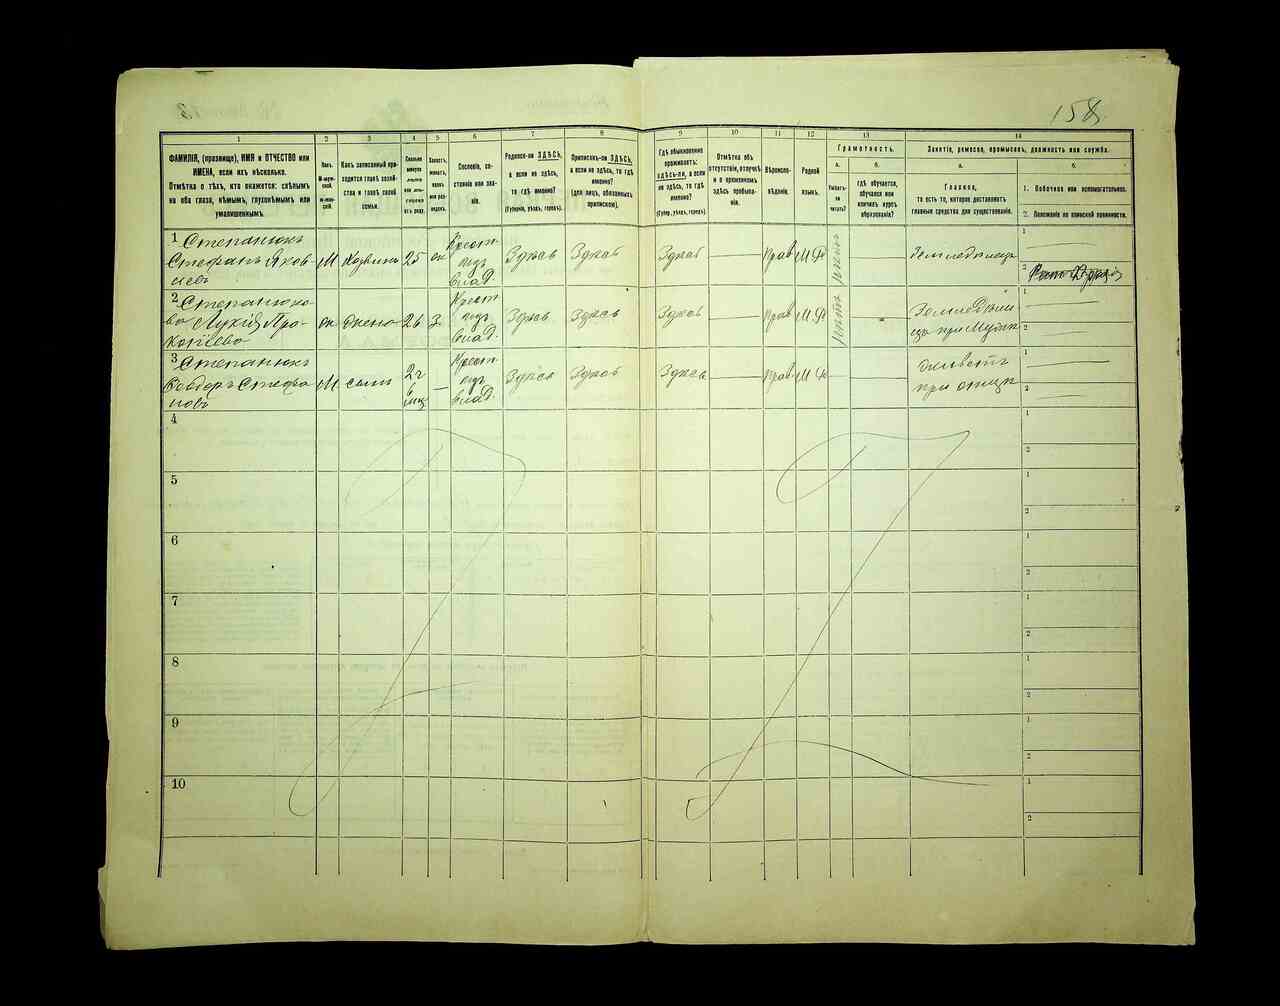 158
1
2
3
4
5
6
7
8
9
10
11
12
13
14
ФАМИЛІЯ, (прозвище), ИМЯ и ОТЧЕСТВО или
ИМЕНА, если ихъ нѣсколько.
Отмѣтка о тѣхъ, кто окажется: слѣпымъ
на оба глаза, нѣмымъ, глухонѣмымъ или
умалишеннымъ.
Полъ.
М-муж-
ской.
Ж-жен-
скій.
Какъ записанный при-
ходится главѣ хозяй-
ства и главѣ своей
семьи.
Сколько
минуло
лѣтъ
Холостъ,
женатъ,
вдовъ
или раз-
веденъ.
Сословіе, со-
стояніе или зва-
ніе.
Родился-ли ЗДѢСЬ,
а если не здѣсь,
то гдѣ именно?
(Губернія, уѣздъ, городъ).
Приписанъ-ли ЗДѢСЬ,
а если не здѣсь, то гдѣ
именно?
(для лицъ, обязанныхъ
припискою).
Гдѣ обыкновенно
проживаетъ:
ЗДѢСЬ-ЛИ, а если
не здѣсь, то гдѣ
именно?
(Губер., уѣздъ, городъ).
Отмѣтка объ
отсутствіи, отлучкѣ
и о временномъ
здѣсь пребыва-
ніи.
Вѣроиспо-
вѣданіе.
Родной
языкъ.
Грамотность.
а.
Умѣетъ-
ли
читать?
б.
гдѣ обучается,
обучался или
кончилъ курсъ
образованія?
Занятіе, ремесло, промыселъ, должность или служба.
а.
Главное,
то есть то, которое доставляетъ
главныя средства для существованія.
б.
1. Побочное или вспомогательное.
2. Положеніе по воинской повинности.
1 Степанюкъ
Стефанъ Яков-
левъ
М
хозяинъ
25
ж
Крест
изъ
влад
Здѣсь
Здѣсь
Здѣсь
Прав
М Р
Земледѣлецъ
1
2
2 Степанюко-
ва Лукія Про-
копіева
ж
жена
26
З
Крест
изъ
влад
Здѣсь
Здѣсь
Здѣсь
Прав
М Р
при Мужѣ
1
2
3 Степанюкъ
Ѳедоръ Стефа-
новъ
М
сынъ
2 г
6
мц
Крест
изъ
влад
Здѣсь
Здѣсь
Здѣсь
Прав
М Р
живетъ
при отцѣ
1
2
4
1
2
5
1
2
6
1
2
7
1
2
8
1
2
9
1
2
10
1
2